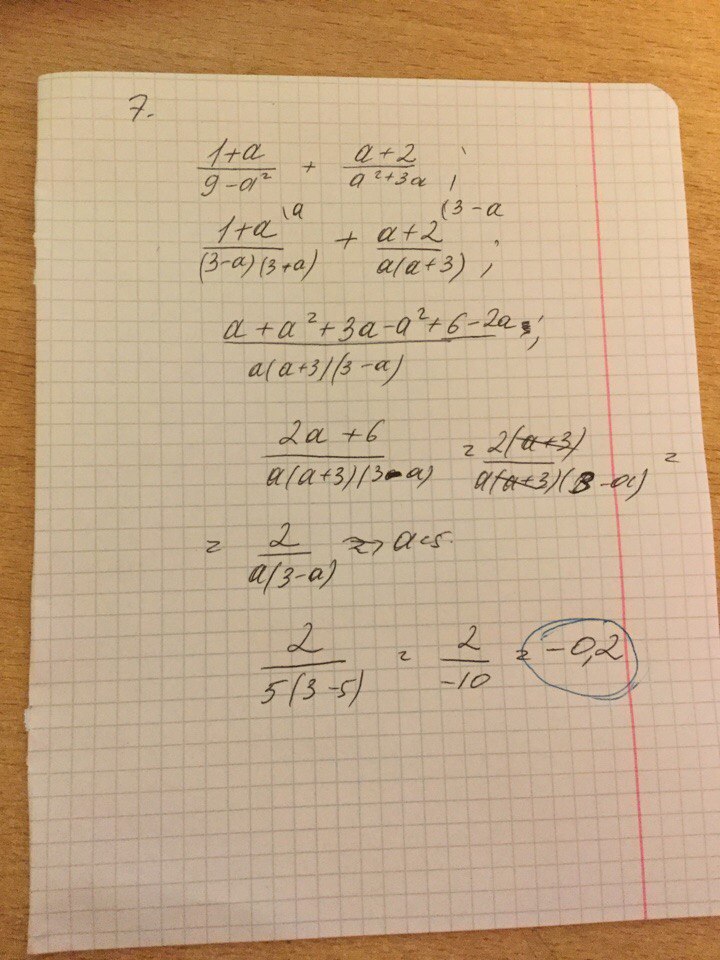 7.
(1+a)/(9-a²) + (a+2)/(a²+3a) ;
(1+a)/((3-a)(3+a)) \a + (a+2)/(a(a+3)) (3-a ;
(a+a²+3a-a²+6-2a)/(a(a+3)(3-a)) ;
(2a+6)/(a(a+3)(3-a)) = 2(a+3)/(a(a+3)(3-a)) =
= 2/(a(3-a)) => a=5
2/(5(3-5)) = 2/-10 = -0,2